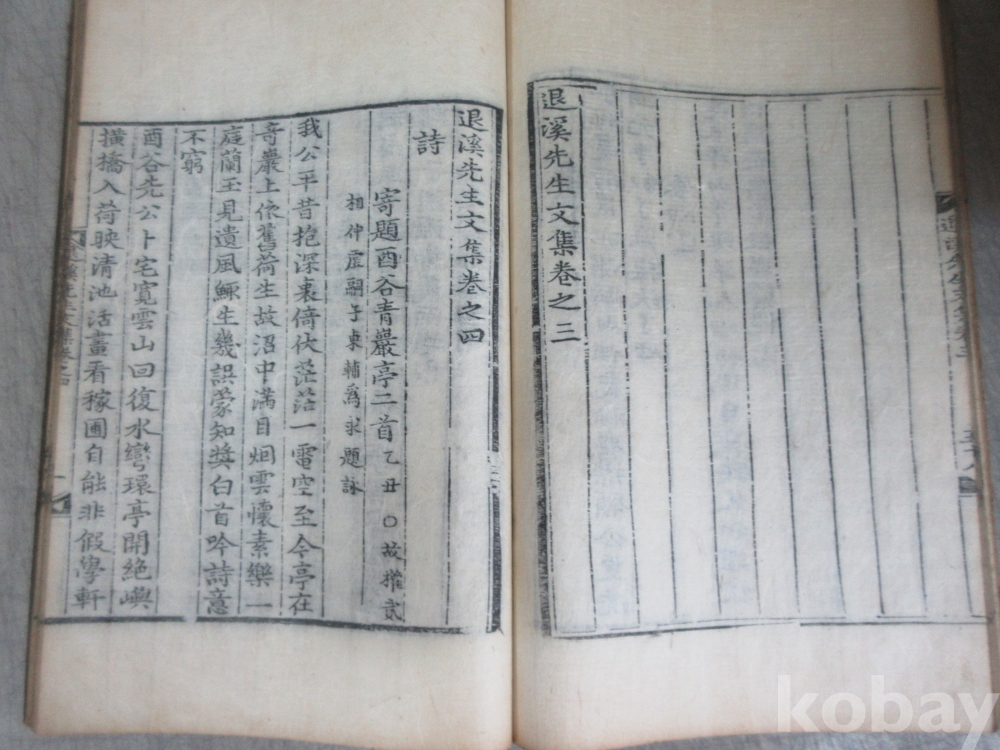 退溪先生文集卷之三
退溪先生文集卷之四
詩
寄題酉谷青巖亭二首乙丑○故權貳
相仲虛嗣子東輔爲求題詠
我公平昔抱深衷倚伏茫茫一電空至今亭在
奇巖上依舊荷生故沼中滿目烟雲懷素樂一
庭蘭玉見遺風鯫生幾誤蒙知奬白首吟詩意
不窮
酉谷先公卜宅寬雲山回復水彎環亭開絕嶼
橫橋入荷映清池活畫看稼圃自能非假學軒
退溪先生文集卷之四
kobay